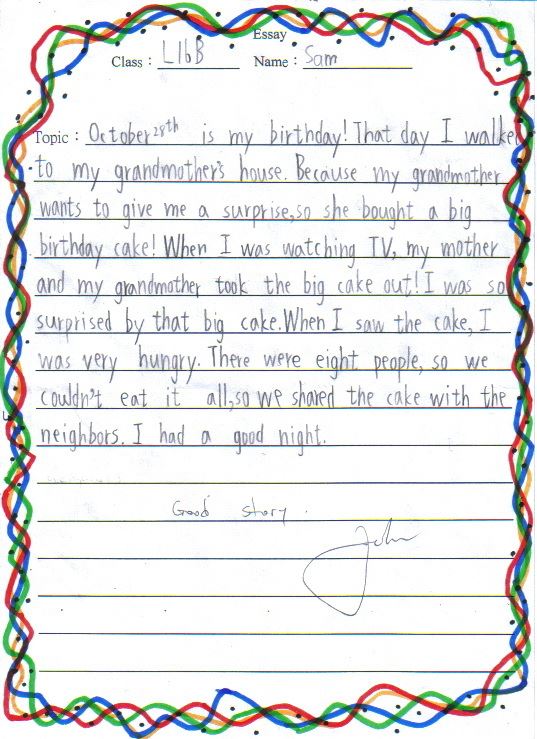 Essay
Class : L16B Name : Sam
Topic : October 28th is my birthday! That day I walke
to my grandmother's house. Because my grandmother
wants to give me a surprise,so she bought a big
birthday cake! When I was watching TV, my mother
and my grandmother took the big cake out! I was so
surprised by that big cake.When I saw the cake, I
was very hungry. There were eight people, so we
couldn't eat it all,so we shared the cake with the
neighbors. I had a good night.
Good story.
John